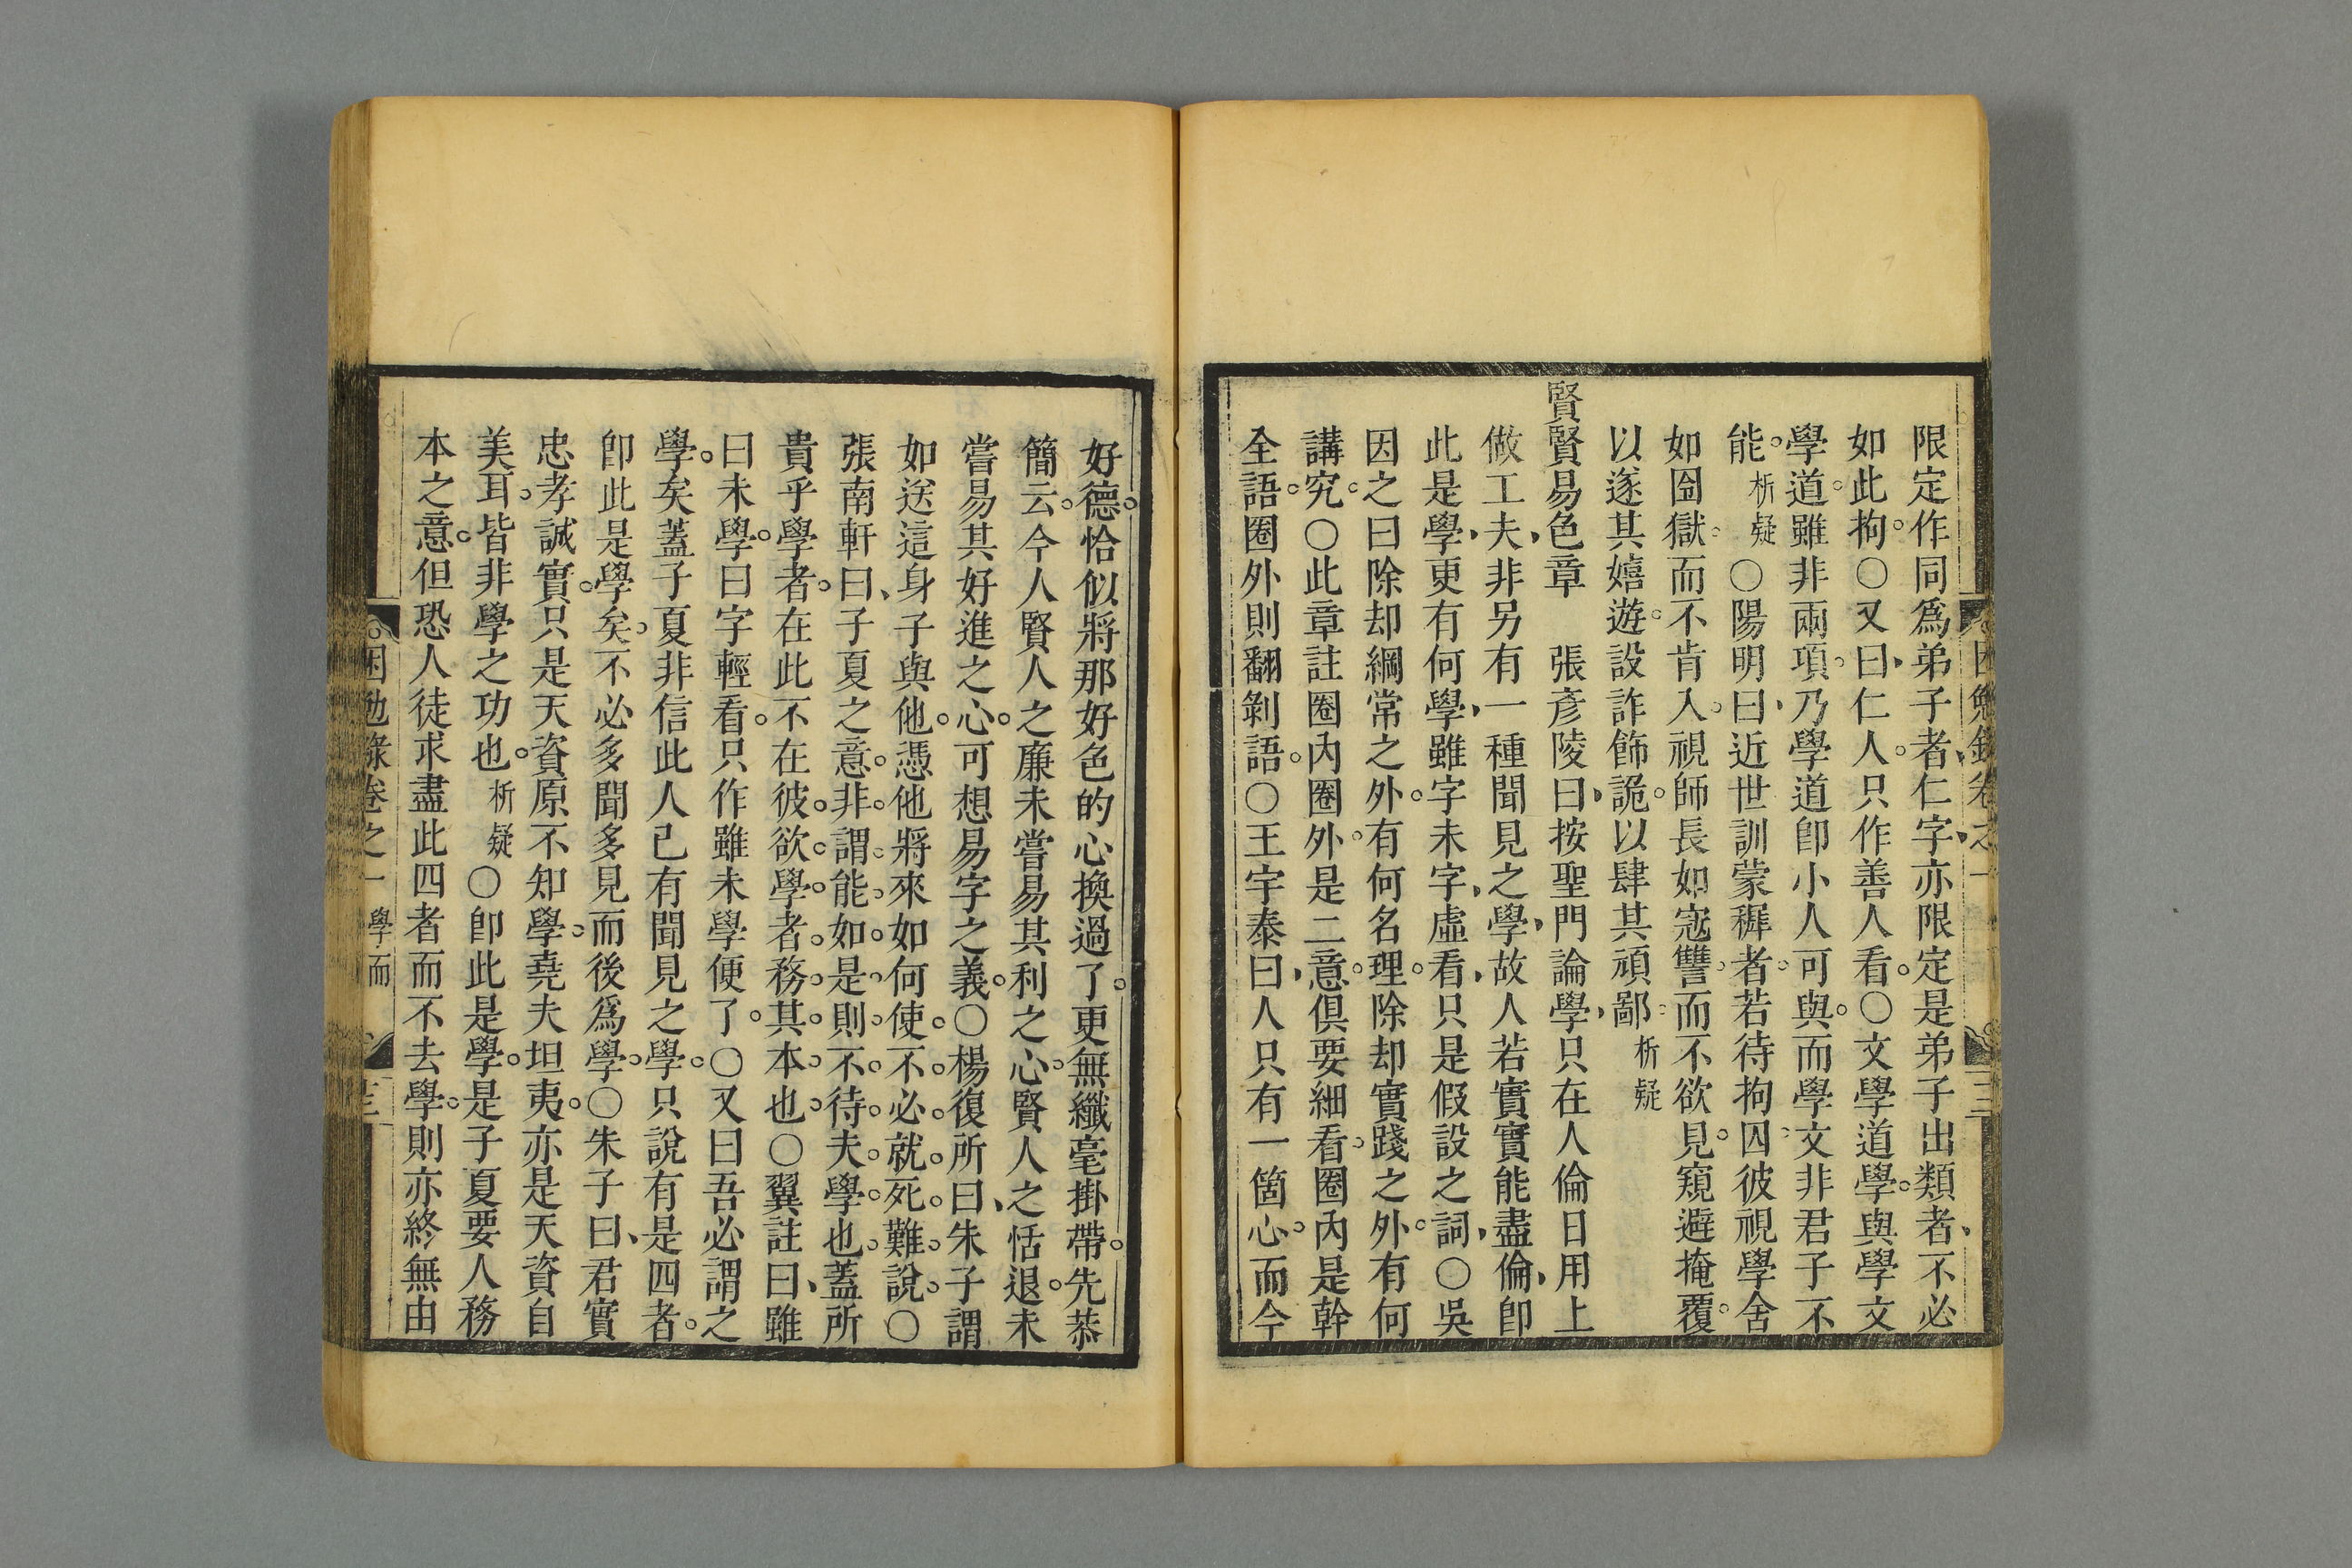 限定作同爲弟子者仁字亦限定是弟子出類者不必
如此拘○又曰仁人只作善人看○文學道學與學文
學道雖非兩項乃學道卽小人可與而學文非君子不
能析疑○陽明曰近世訓蒙穉者若待拘囚彼視學舍
如囹獄而不肯入視師長如寇讐而不欲見窺避掩覆
以遂其嬉遊設詐飾詭以肆其頑鄙析疑
賢賢易色章　張彥陵曰按聖門論學只在人倫日用上
做工夫非另有一種聞見之學故人若實實能盡倫卽
此是學更有何學雖字未字虛看只是假設之詞○吳
因之曰除却綱常之外有何名理除却實踐之外有何
講究○此章註圈內圈外是二意俱要細看圈內是幹
全語圈外則翻剝語○王宇泰曰人只有一箇心而今
好德恰似將那好色的心換過了更無纖毫掛帶先恭
簡云今人賢人之廉未嘗易其利之心賢人之恬退未
嘗易其好進之心可想易字之義○楊復所曰朱子謂
如送這身子與他憑他將來如何使不必就死難說○
張南軒曰子夏之意非謂能如是則不待夫學也蓋所
貴乎學者在此不在彼欲學者務其本也○翼註曰雖
曰未學曰字輕看只作雖未學便了○又曰吾必謂之
學矣蓋子夏非信此人已有聞見之學只說有是四者
卽此是學矣不必多聞多見而後爲學○朱子曰君實
忠孝誠實只是天資原不知學堯夫坦夷亦是天資自
美耳皆非學之功也析疑○卽此是學是子夏要人務
本之意但恐人徒求盡此四者而不去學則亦終無由
困勉錄卷之一　學而